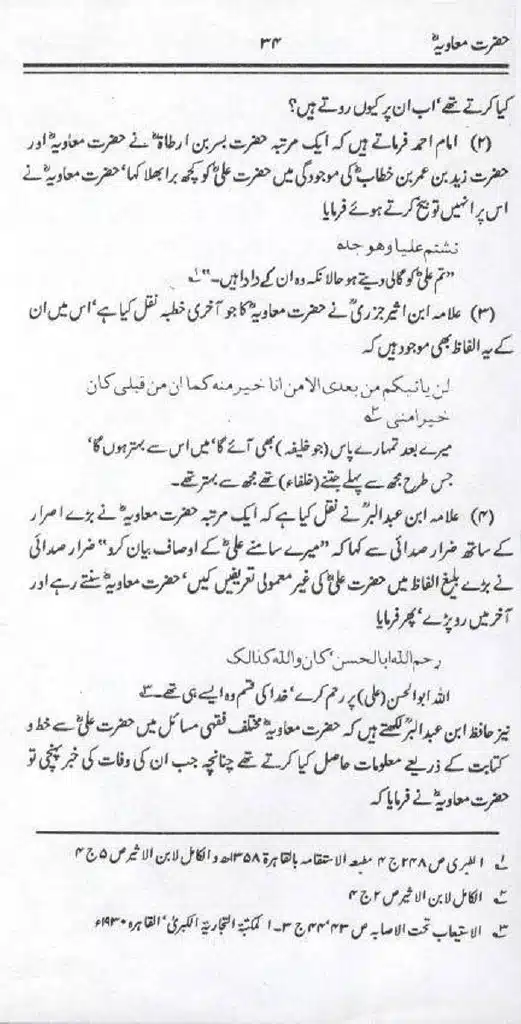 حضرت معاویہؓ ۳۴
کیا کرتے تھے‘ اب ان پر کیوں روتے ہیں؟
(۲) امام احمد فرماتے ہیں کہ ایک مرتبہ حضرت بسر بن ارطاۃؓ نے حضرت معاویہؓ اور
حضرت زید بن عمر بن خطابؓ کی موجودگی میں حضرت علیؓ کو کچھ برا بھلا کہا‘ حضرت معاویہؓ نے
اس پر انہیں توبیخ کرتے ہوئے فرمایا
نشتم علیا وھو جدہ
”تم علیؓ کو گالی دیتے ہو حالانکہ وہ ان کے دادا ہیں۔“ ۱؎
(۳) علامہ ابن اثیر جزریؒ نے حضرت معاویہؓ کا جو آخری خطبہ نقل کیا ہے‘ اس میں ان
کے یہ الفاظ بھی موجود ہیں کہ
لن یاتیکم من بعدی الا من انا خیر منہ کما ان من قبلی کان
خیرا منی ۲؎
میرے بعد تمہارے پاس (جو خلیفہ) بھی آئے گا‘ میں اس سے بہتر ہوں گا‘
جس طرح مجھ سے پہلے جتنے (خلفاء) تھے مجھ سے بہتر تھے۔
(۴) علامہ ابن عبدالبرؒ نے نقل کیا ہے کہ ایک مرتبہ حضرت معاویہؓ نے بڑے اصرار
کے ساتھ ضرار صدائی سے کہا کہ ”میرے سامنے علیؓ کے اوصاف بیان کرو“ ضرار صدائی
نے بڑے بلیغ الفاظ میں حضرت علیؓ کی غیر معمولی تعریفیں کیں‘ حضرت معاویہؓ سنتے رہے اور
آخر میں رو پڑے‘ پھر فرمایا
رحم اللہ ابا الحسن‘ کان واللہ کذالک
اللہ ابوالحسن (علی) پر رحم کرے‘ خدا کی قسم وہ ایسے ہی تھے۔ ۳؎
نیز حافظ ابن عبدالبرؒ لکھتے ہیں کہ حضرت معاویہؓ مختلف فقہی مسائل میں حضرت علیؓ سے خط و
کتابت کے ذریعے معلومات حاصل کیا کرتے تھے چنانچہ جب ان کی وفات کی خبر پہنچی تو
حضرت معاویہؓ نے فرمایا کہ
۱؎ الطبری ص ۲۴۸ ج ۴ مطبعہ الاستقامہ بالقاہرۃ ۱۳۵۸ھ و الکامل لابن الاثیر ص ۵ ج ۴
۲؎ الکامل لابن الاثیر ص ۲ ج ۴
۳؎ الاستیعاب تحت الاصابہ ص ۴۳‘ ۴۴ ج ۳۔ المکتبۃ التجاریۃ الکبریٰ‘ القاہرہ ۱۹۳۰ء